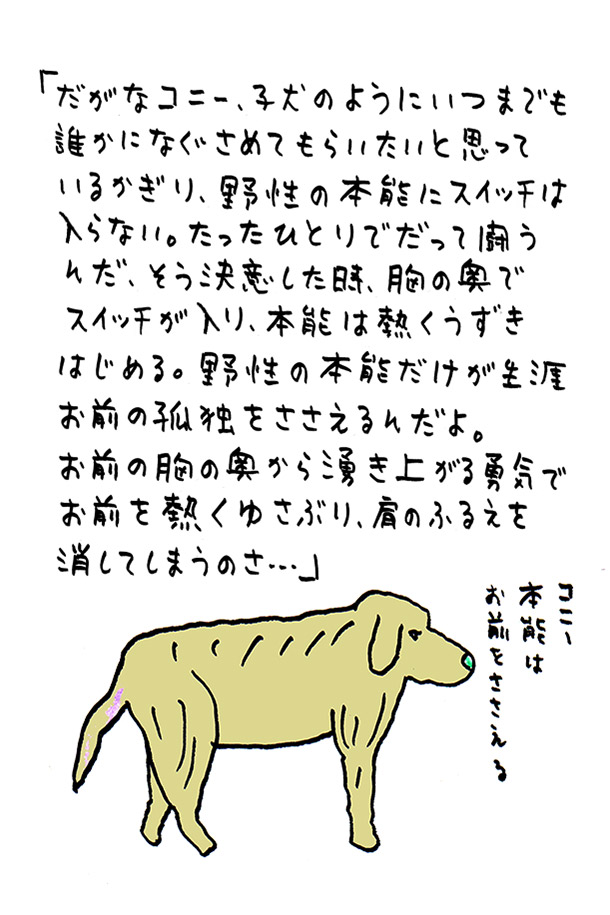 「だがなコニー、子犬のようにいつまでも
誰かになぐさめてもらいたいと思って
いるかぎり、野性の本能にスイッチは
入らない。たったひとりでだって闘う
んだ、そう決意した時、胸の奥で
スイッチが入り、本能は熱くうずき
はじめる。野性の本能だけが生涯
お前の孤独をささえるんだよ。
お前の胸の奥から湧き上がる勇気で
お前を熱くゆさぶり、肩のふるえを
消してしまうのさ…」
コニー
本能は
お前をささえる